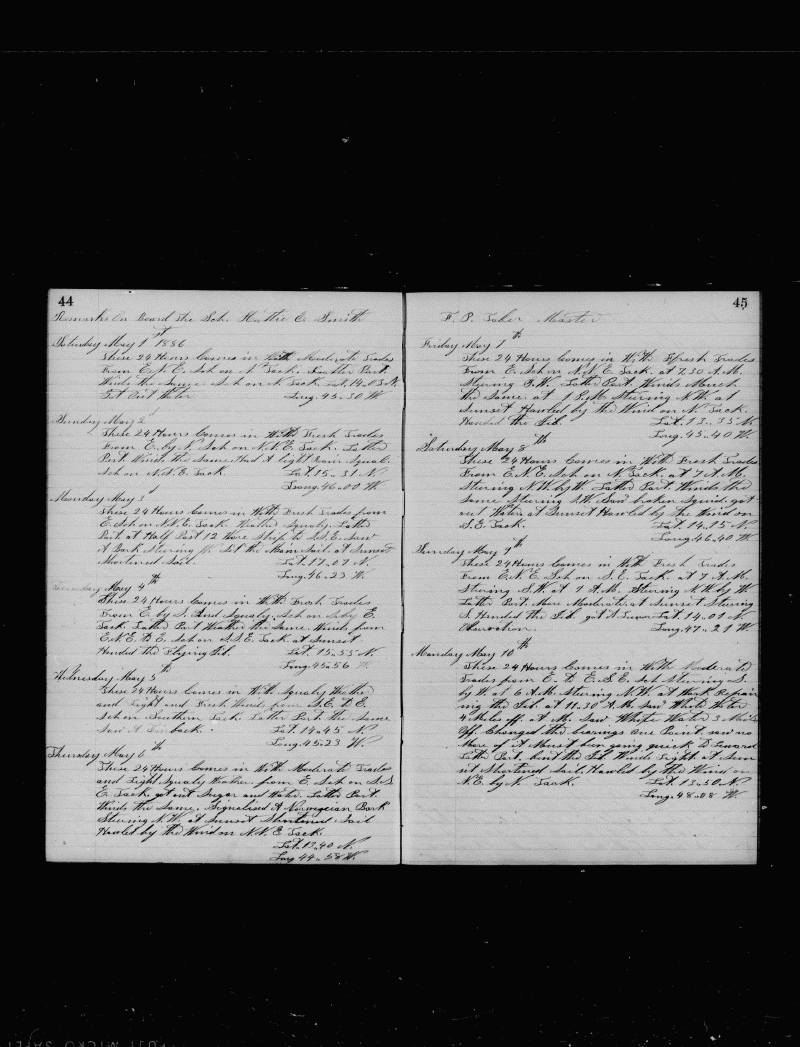 44
Remarks On Board the Sch. Hattie E. Smith
Saturday May 1st 1886
These 24 Hours Comes in With Moderate Trades
From E.N.E. Sch on N Tack. Latter Part
Winds the Same. Sch on N. Tack. Lat. 14-03 N.
Got Out Water Long. 45-30 W.
Sunday May 2d
These 24 Hours Comes in With Fresh Trades
From E. by N. Sch on N.N.E. Tack. Latter
Part Winds the Same. Had A light Rain Squall.
Sch on N.N.E. Tack. Lat. 15-31 N
Long. 46-00 W.
Monday May 3d
These 24 Hours Comes in With Fresh Trades from
E. Sch on N.N.E. Tack. Weather Squaly. Latter
Part. at Half Past 12 Wore Ship to S.S.E. Saw
A Bark Steering Set the Main Sail. at Sunset
Shortened Sail. Lat. 17-07 N.
Long. 46-23 W.
Tuesday May 4th
These 24 Hours Comes in With Fresh Trades
From E. by S. And Squaly. Sch on S. by E.
Tack. Latter Part Weather the Same. Winds from
E.N.E. to E. Sch on S.S.E. Tack. at Sunset
Handed the Flying Jib. Lat. 15-55 N.
Long. 45-56 W.
Wednesday May 5th
These 24 Hours Comes in With Squaly Weather
and Light and Fresh Winds from S.E. to E.
Sch on Southern Tack. Latter Part the Same
Saw A Finback. Lat. 14-45 N.
Long. 45-23 W.
Thursday May 6th
These 24 Hours Comes in With Moderate Trades
and Light Squaly Weather from E. Sch on S.S.
E. Tack. got out Sugar and Water. Latter Part
Winds the Same. Signalised A Norwegian Bark
Steering N.W. at Sunset Shortened Sail
Hawled by the Wind on N.N.E Tack.
Lat. 13-40 N.
Long 44-58 W.
45
F. P. Master
Friday May 7th
These 24 Hours Comes in With Fresh Trades
From E. Sch on N.N.E. Tack. at 7.30 A.M.
Steering S.W. Latter Part. Winds Much
the Same. at 1 P.M. Steering N.W. at
Sunset Hawled by the Wind on N. Tack.
Handed the Jib. Lat. 13-35 N
Long. 45-40 W.
Saturday May 8th
These 24 Hours Comes in With Fresh Trades
From E.N.E. Sch on N. Tack. at 7 A.M.
Steering N.W. by W. Latter Part. Winds the
Same Steering S.W. Saw broken Squid. got
out Water. at Sunset Hawled by the Wind on
S.E. Tack. Lat. 14-15 N.
Long. 46-40 W.
Sunday May 9th
These 24 Hours Comes in With Fresh Trades
From E.N.E. Sch on S.E. Tack. at 7 A.M.
Steering S.W. at 9 A.M. Steering N.W. by W.
Latter Part. More Moderate. at Sunset Steering
S. Handed the Jib. got A Lunar Lat. 14-01 N
Observation. Long. 47-21 W.
Monday May 10th
These 24 Hours Comes in With Moderate
Trades from E. to E.S.E. Sch Steering S.
by W. at 6 A.M. Steering N.W. at Work Repair
ing the Jib. at 11.30 A.M. Saw White Water
4 Miles off. at M. Saw White Water 3 Miles
Off. Changed the bearings One Point. saw no
More of it Must been going quick to Leeward
Latter Part. bent the Jib. Winds Light. at Sun
set Shortened Sail. Hawled by the Wind on
N.E. by N. Tack. Lat. 13-50 N.
Long. 48-08 W.